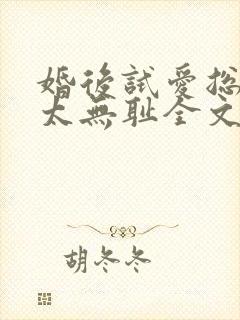 婚後試愛总
太無耻全文
胡冬冬